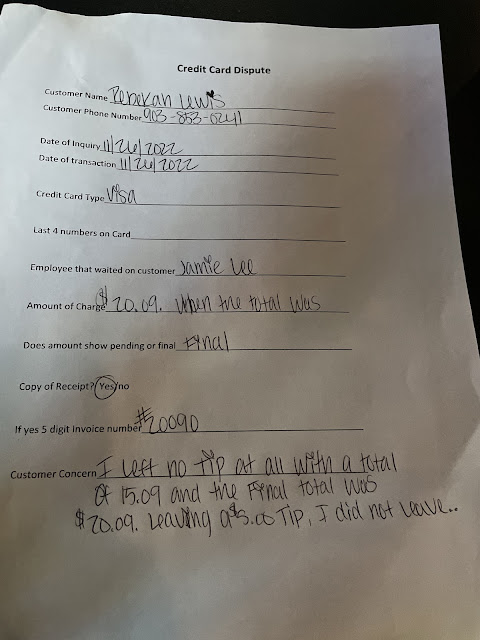 Credit Card Dispute
Customer Name Rebekah Lewis
Customer Phone Number 903-853-0241
Date of Inquiry 11/26/2022
Date of transaction 11/26/2022
Credit Card Type Visa
Last 4 numbers on Card
Employee that waited on customer Jamie Lee
Amount of Charge $20.09. When the total was
Does amount show pending or final Final
Copy of Receipt? Yes/no
If yes 5 digit Invoice number #20090
Customer Concern I left no Tip at all with a total
of 15.09 and the Final total was
$20.09. Leaving a $5.00 Tip, I did not leave..